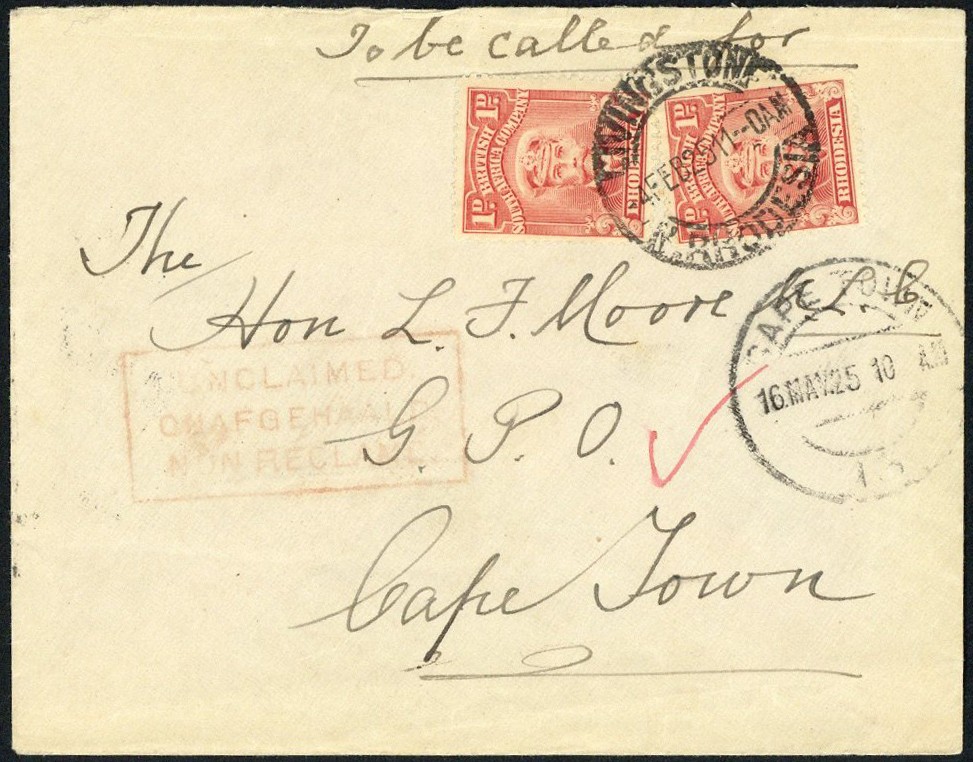 To be called for
1D BRITISH 1D
SOUTH AFRICA COMPANY
RHODESIA
1D BRITISH 1D
SOUTH AFRICA COMPANY
RHODESIA
LIVINGSTONE
FEB 25 11--0AM
N. RHODESIA
The
Hon L. F. Moore
CAPE TOWN
16.MAY.25 10 AM
UNCLAIMED.
ONAFGEHAALD.
NON RECLAMÉ.
G. P. O.
Cape Town